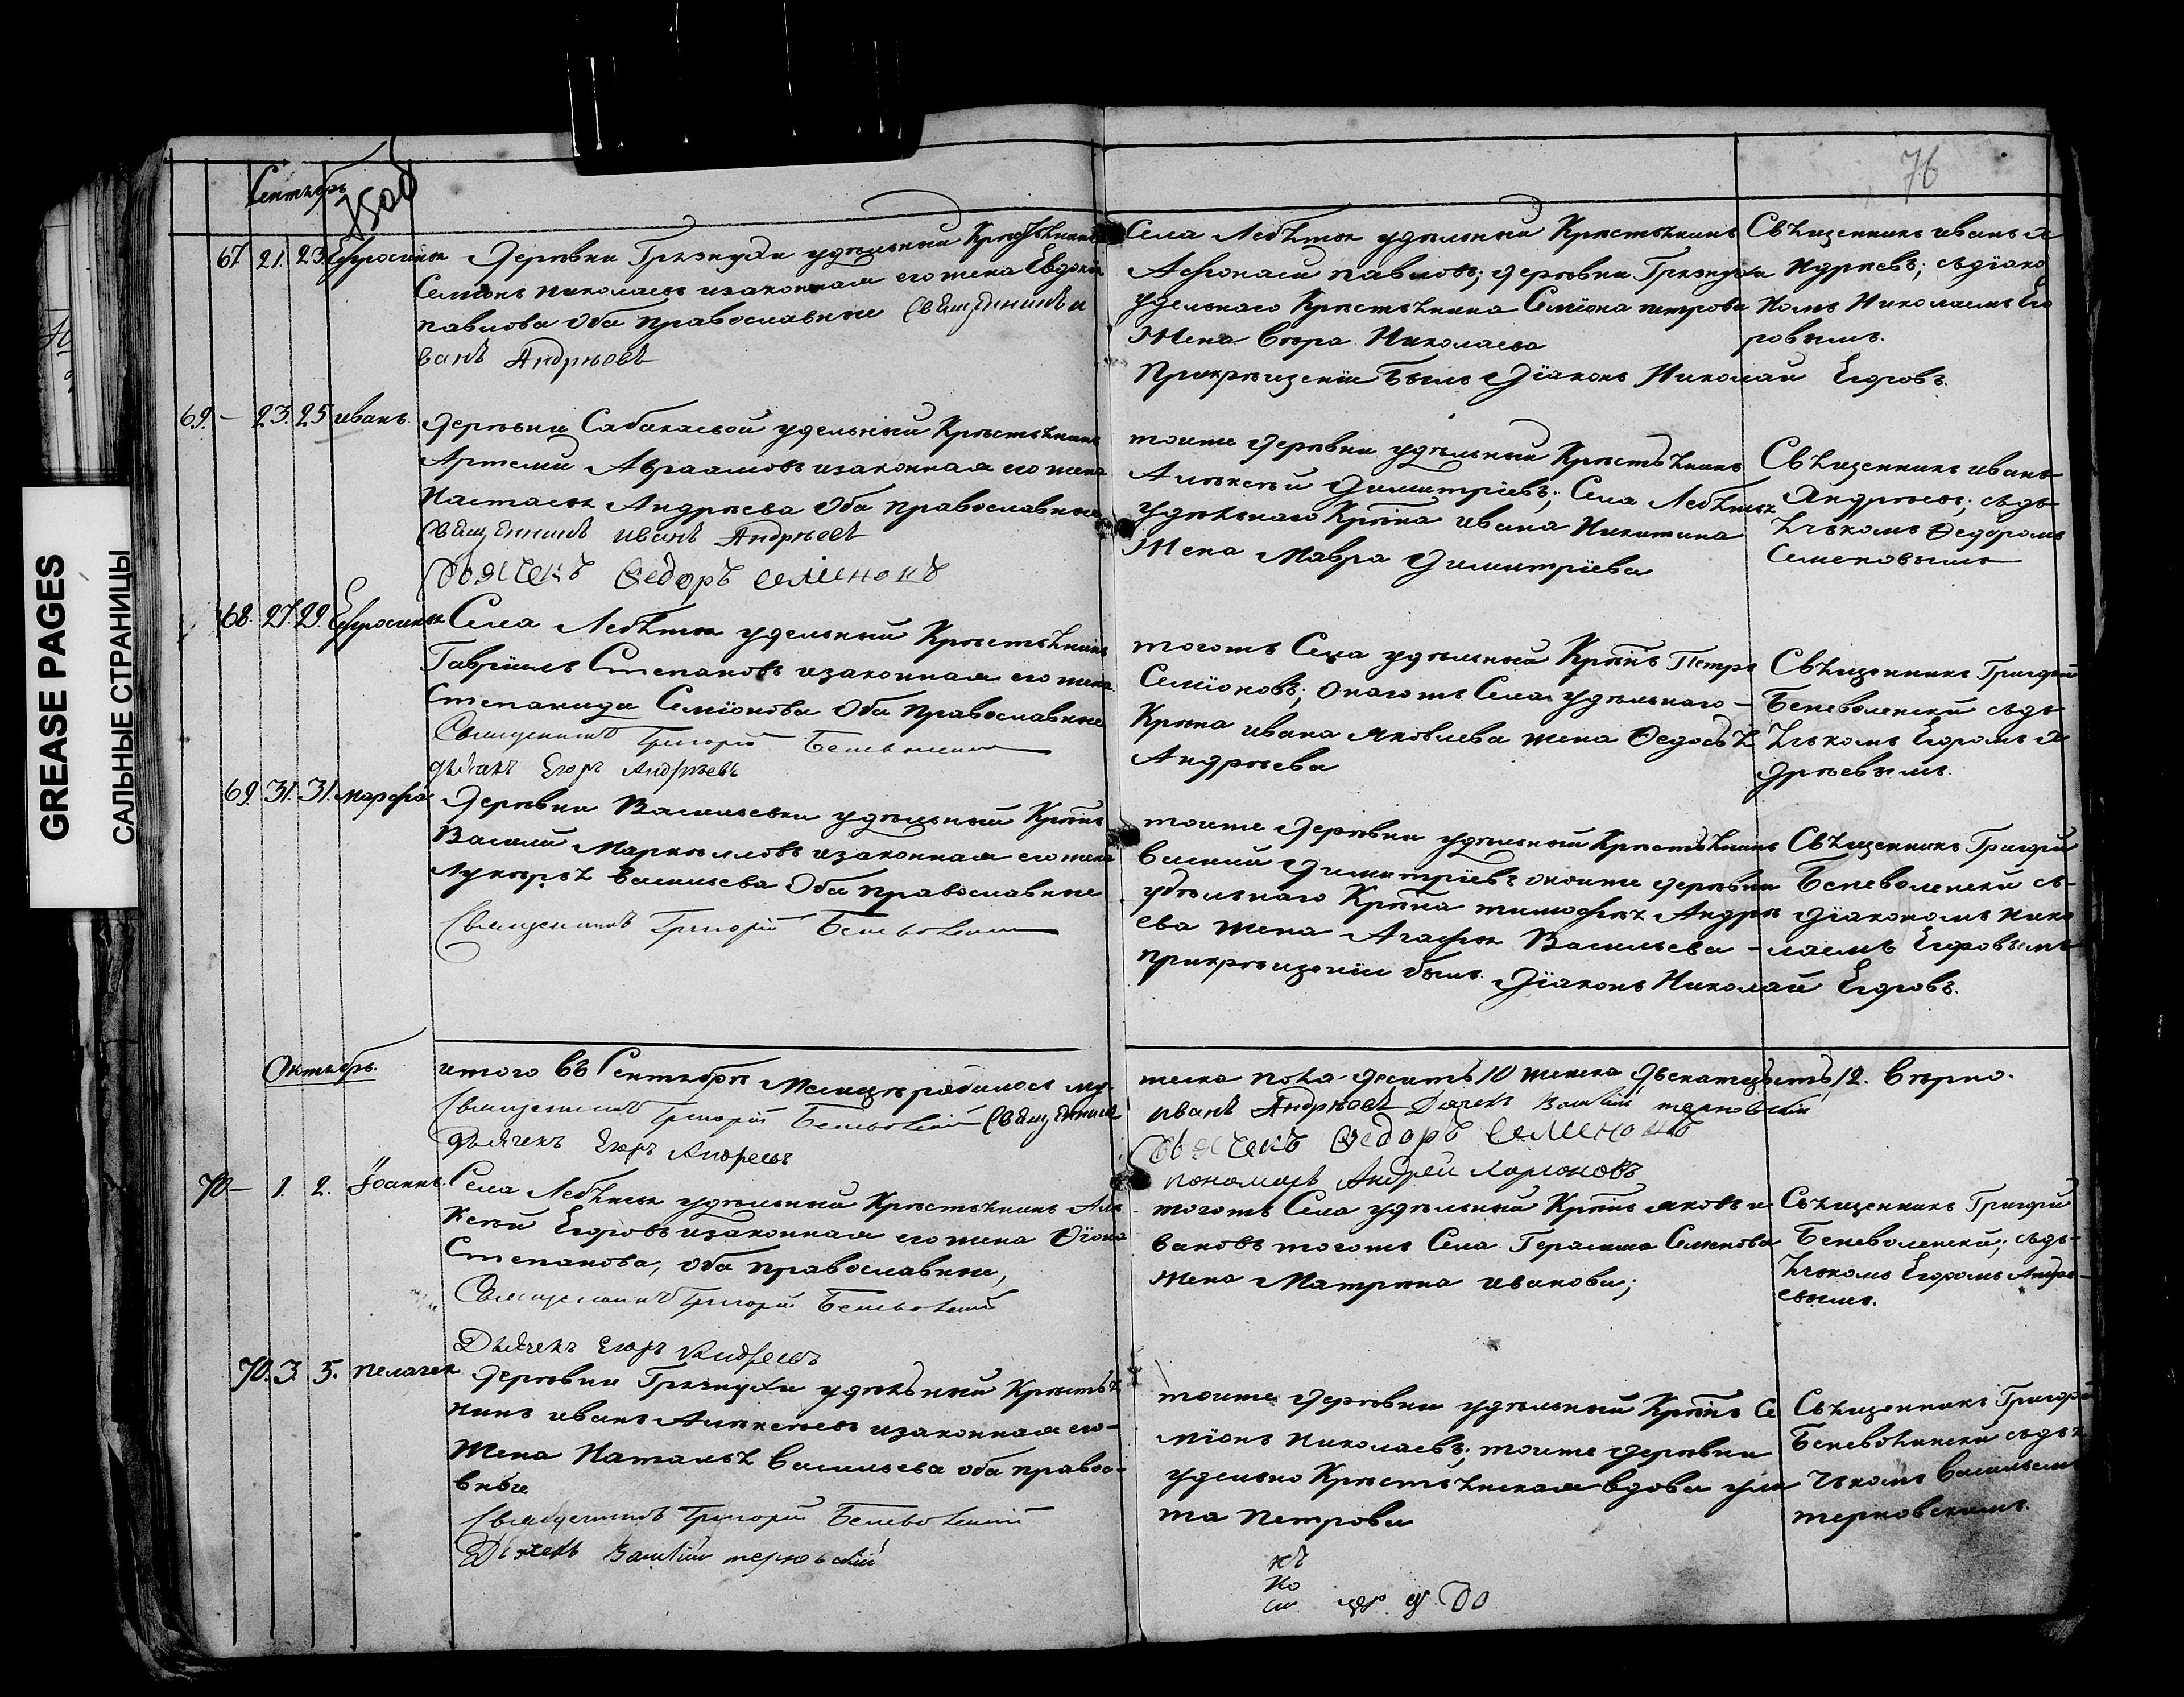 Сентябрь
76
67. 21. 23. Ефросинья
Деревни Грязнухи удѣльный Крестьянинъ
Семіонъ Николаевъ изаконная его жена Евдокія
павлова Оба православные Священникъ и
ванъ Андрѣевъ
Села Лебѣжья удѣльный Крестьянинъ
Афонасій павловъ; деревни Грязнухи
удельнаго Крестьянина Семіона петрова
Жена Вѣра Николаева
Прикрѣщеніи Былъ Діаконъ Николай Егоровъ.
Свѣщенникъ иванъ А
ндрѣевъ; съдіако
номъ Николаемъ Его
ровымъ.
69. - 23. 25 иванъ.
деревни Сабакаевой удельный Крестьянинъ
Артемій Авраамовъ изаконная его жена
Настасья Андрѣева Оба православные
Священникъ иванъ Андрѣевъ
Дьячекъ Ѳедоръ семеновъ
тоиже деревни удѣльный Крестьянинъ
Алѣксѣй Димитріевъ; Села Лебѣжья
удѣльнаго Крѣнна ивана Никитина
Жена Мавра Димитріева
Свѣщенникъ иванъ
Андрѣевъ; съдь
ячькомъ Ѳедоромъ
Семеновымъ
68. 27. 29. Ефросинья
Села Лебѣжья удельный Крѣстьянинъ
Гавріилъ Степановъ изаконная его жена
Степанида Семіонова Оба Православные
Священникъ Григорій Беневоленскій
дьячекъ Егоръ Андрѣевъ
тогожъ Села удѣльный Крѣнъ Петръ
Семіоновъ; Онагожъ Села удѣльнаго -
Крѣна ивана яковлева жена Ѳедосья
Андрѣева
Свѣщенникъ Григорій
Беневоленскій съдь
ячькомъ Егоромъ Ан
дрѣевымъ.
69. 31. 31. марфа
Деревни Васильевки удѣльный Крѣнъ
Василій Маркѣлловъ изаконная его жена
Лукѣрья Васильева Оба православные
Священникъ Григорій Беневоленскій
тоиже деревни удѣльный Крѣстьянинъ
Василий Димитріевъ оноиже деревни
удѣльнаго Крѣна тимофѣя Андрѣ
ева жена Агафья Васильева -
прикрѣщеніи былъ. Діаконъ Николай Егоровъ.
Свѣщенникъ Григорій
Беневоленскій съ-
діакономъ Нико
лаемъ Егоровымъ
Октябрь.
итого въ Сентябрѣ Месяцѣ родилось му-
Священникъ Григорій Беневоленскій Священникъ
Дьячекъ Егоръ Андреевъ
жеска пола десять 10 женска двенатцеть, 12. Вѣрно.
иванъ Андрѣевъ Дячекъ Василій терновскій
Дьячекъ Ѳедоръ семеновъ
пономарь Андрей Ларионовъ
70 - 1. 2. Іоаннъ.
Села Лебѣжья удѣльный Крѣстьянинъ Алѣ
ксѣй Егоровъ изаконная его жена Ѳіона
Степанова, оба православные,
Священникъ Григорій Беневоленскій
Дьячекъ Егоръ Андреевъ
тогожъ Села удѣльный Крѣнъ яковъ и
вановъ тогожъ Села Герасима Семенова
жена Матрѣна иванова;
Свѣщенникъ Григорій
Беневоленскій; съдь-
ячькомъ Егоромъ Андрѣ-
евымъ.
70. 3. 5. пелагея
Деревни Грязнухи удѣльный Крѣстья
нинъ иванъ Алѣксѣевъ изаконная его-
Жена Наталья Васильева оба правос-
вные
Священникъ Григорій Беневоленскій
Дьячекъ Василій терновскій
тоиже деревни удѣльный Крѣнъ Се
міонъ Николаевъ; тоиже деревни
удельно Крѣстьянская вдова ули
та Петрова
Свѣщенникъ Григорій
Беневоленскій съдья
чькомъ Васильемъ
терновскимъ.
GREASE PAGES
САЛЬНЫЕ СТРАНИЦЫ